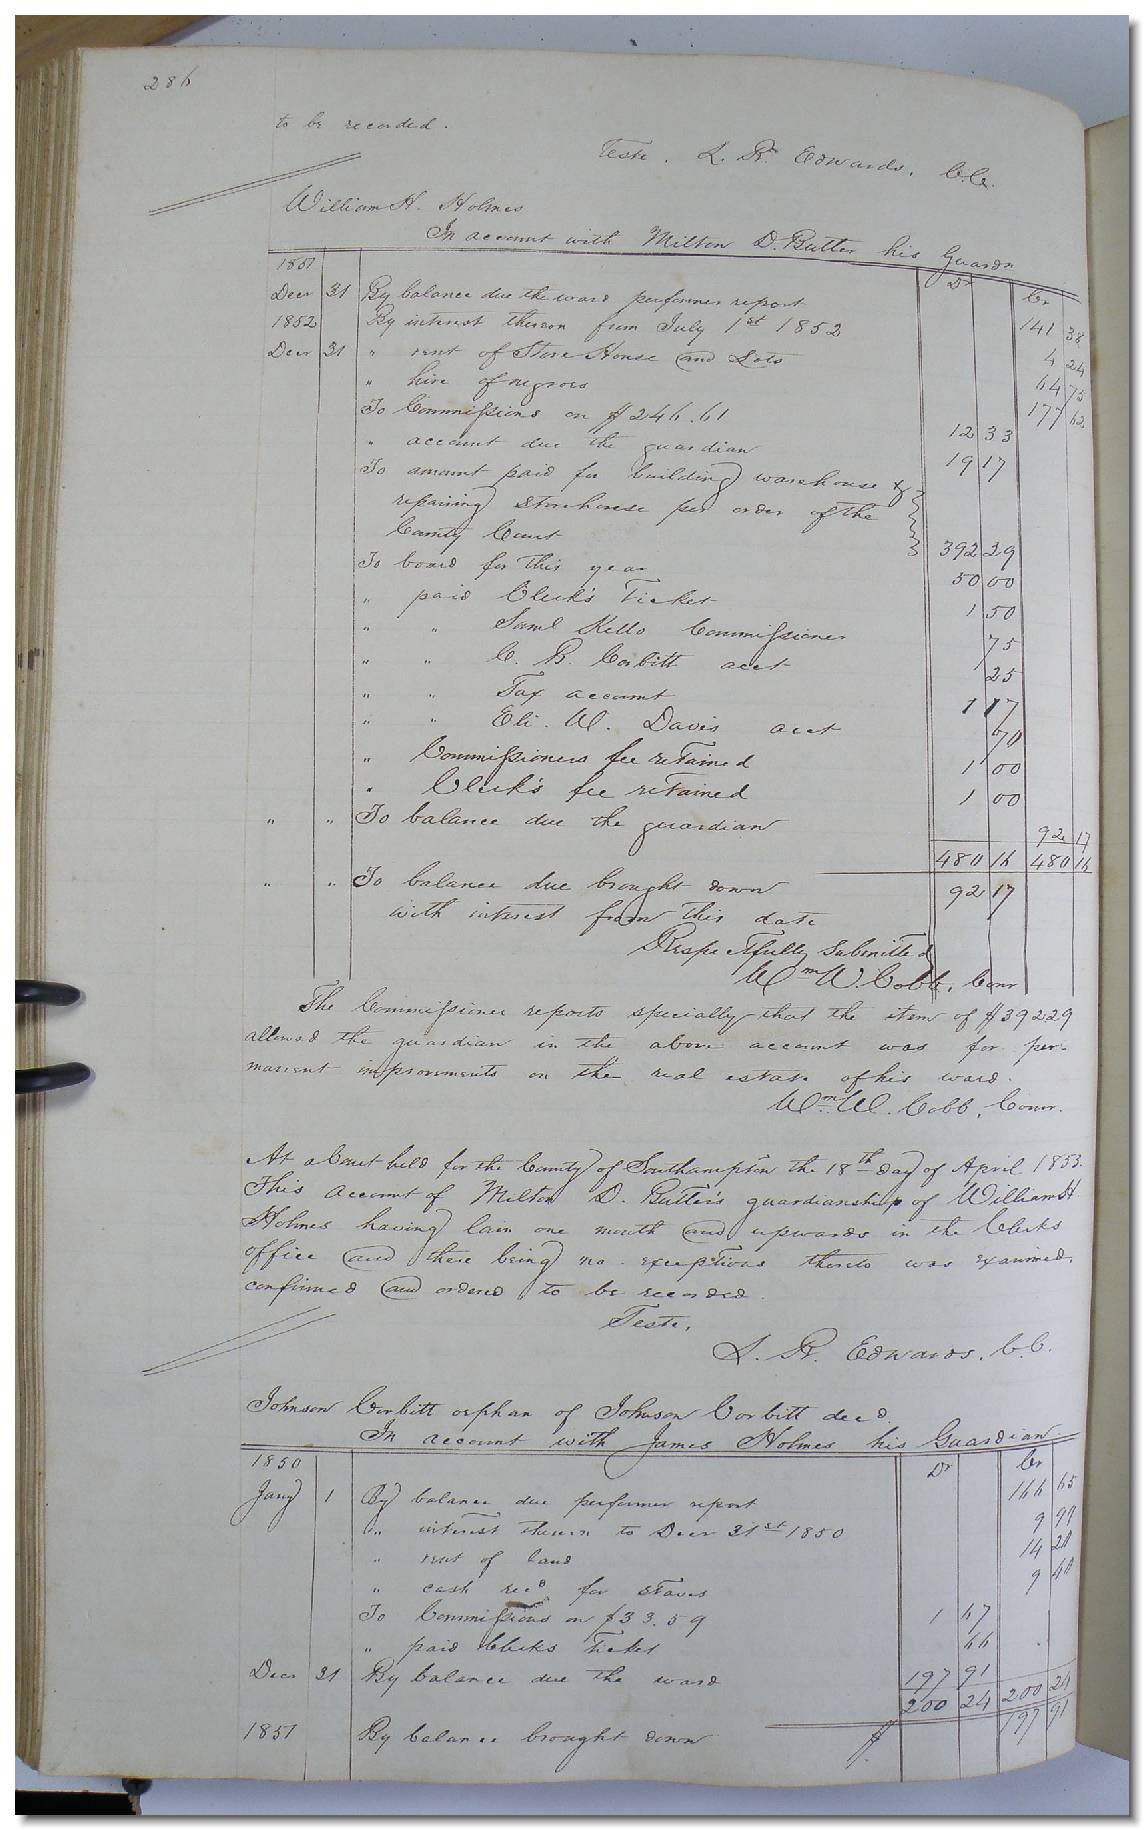 286
to be recorded.
Teste. L. R. Edwards. C.C.
William H. Holmes
In account with Milton D. Butter his Guardn
Dr Cr
1851
Decr 31 By balance due the ward performer report 141 38
1852 By interest thereon from July 1st 1852 4 24
Decr 31 " rent of Store House and Lots 64 75
" hire of negroes 177 62
To Commissions on $246.61 12 33
" account due the guardian 19 17
To amount paid for building warehouse &
repairing storehouse per order of the
County Court 392 29
To board for this year 50 00
" paid Clerk's Ticket 1 50
" " Saml Kello Commissioner 75
" " C. B. Corbitt acct 25
" " Tax account 1 17
" " Eli. W. Davis acct 70
" Commissioners fee retained 1 00
" Clerk's fee retained 1 00
" " To balance due the guardian 92 17
480 16 480 16
" " To balance due brought down 92 17
with interest from this date
Respectfully Submitted
Wm W. Cobb, Comr
The Commissioner reports specially that the item of $392.29
allowed the guardian in the above account was for per-
manent improvements on the real estate of his ward.
Wm W. Cobb, Comr.
At a Court held for the County of Southampton the 18th day of April 1853.
This account of Milton D. Butter's guardianship of William H
Holmes having lain one month and upwards in the Clerks
office and there being no exceptions thereto was examined.
confirmed and ordered to be recorded.
Teste,
L. R. Edwards. C.C.
Johnson Corbitt orphan of Johnson Corbitt decd.
In account with James Holmes his Guardian.
1850 Dr Cr
Jany 1 By balance due performer report 166 65
" interest thereon to Decr 31st 1850 9 99
" rent of land 14 20
" cash recd for staves 9 40
To Commissions on $33.59 1 67
" paid Clerks Ticket 66
Decr 31 By balance due the ward 197 91
200 24 200 24
1851 By balance brought down $ 197 91